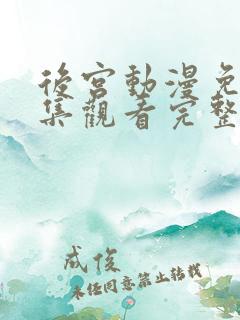 後宮動漫免
集觀看完整
成俊
未经同意禁止转载